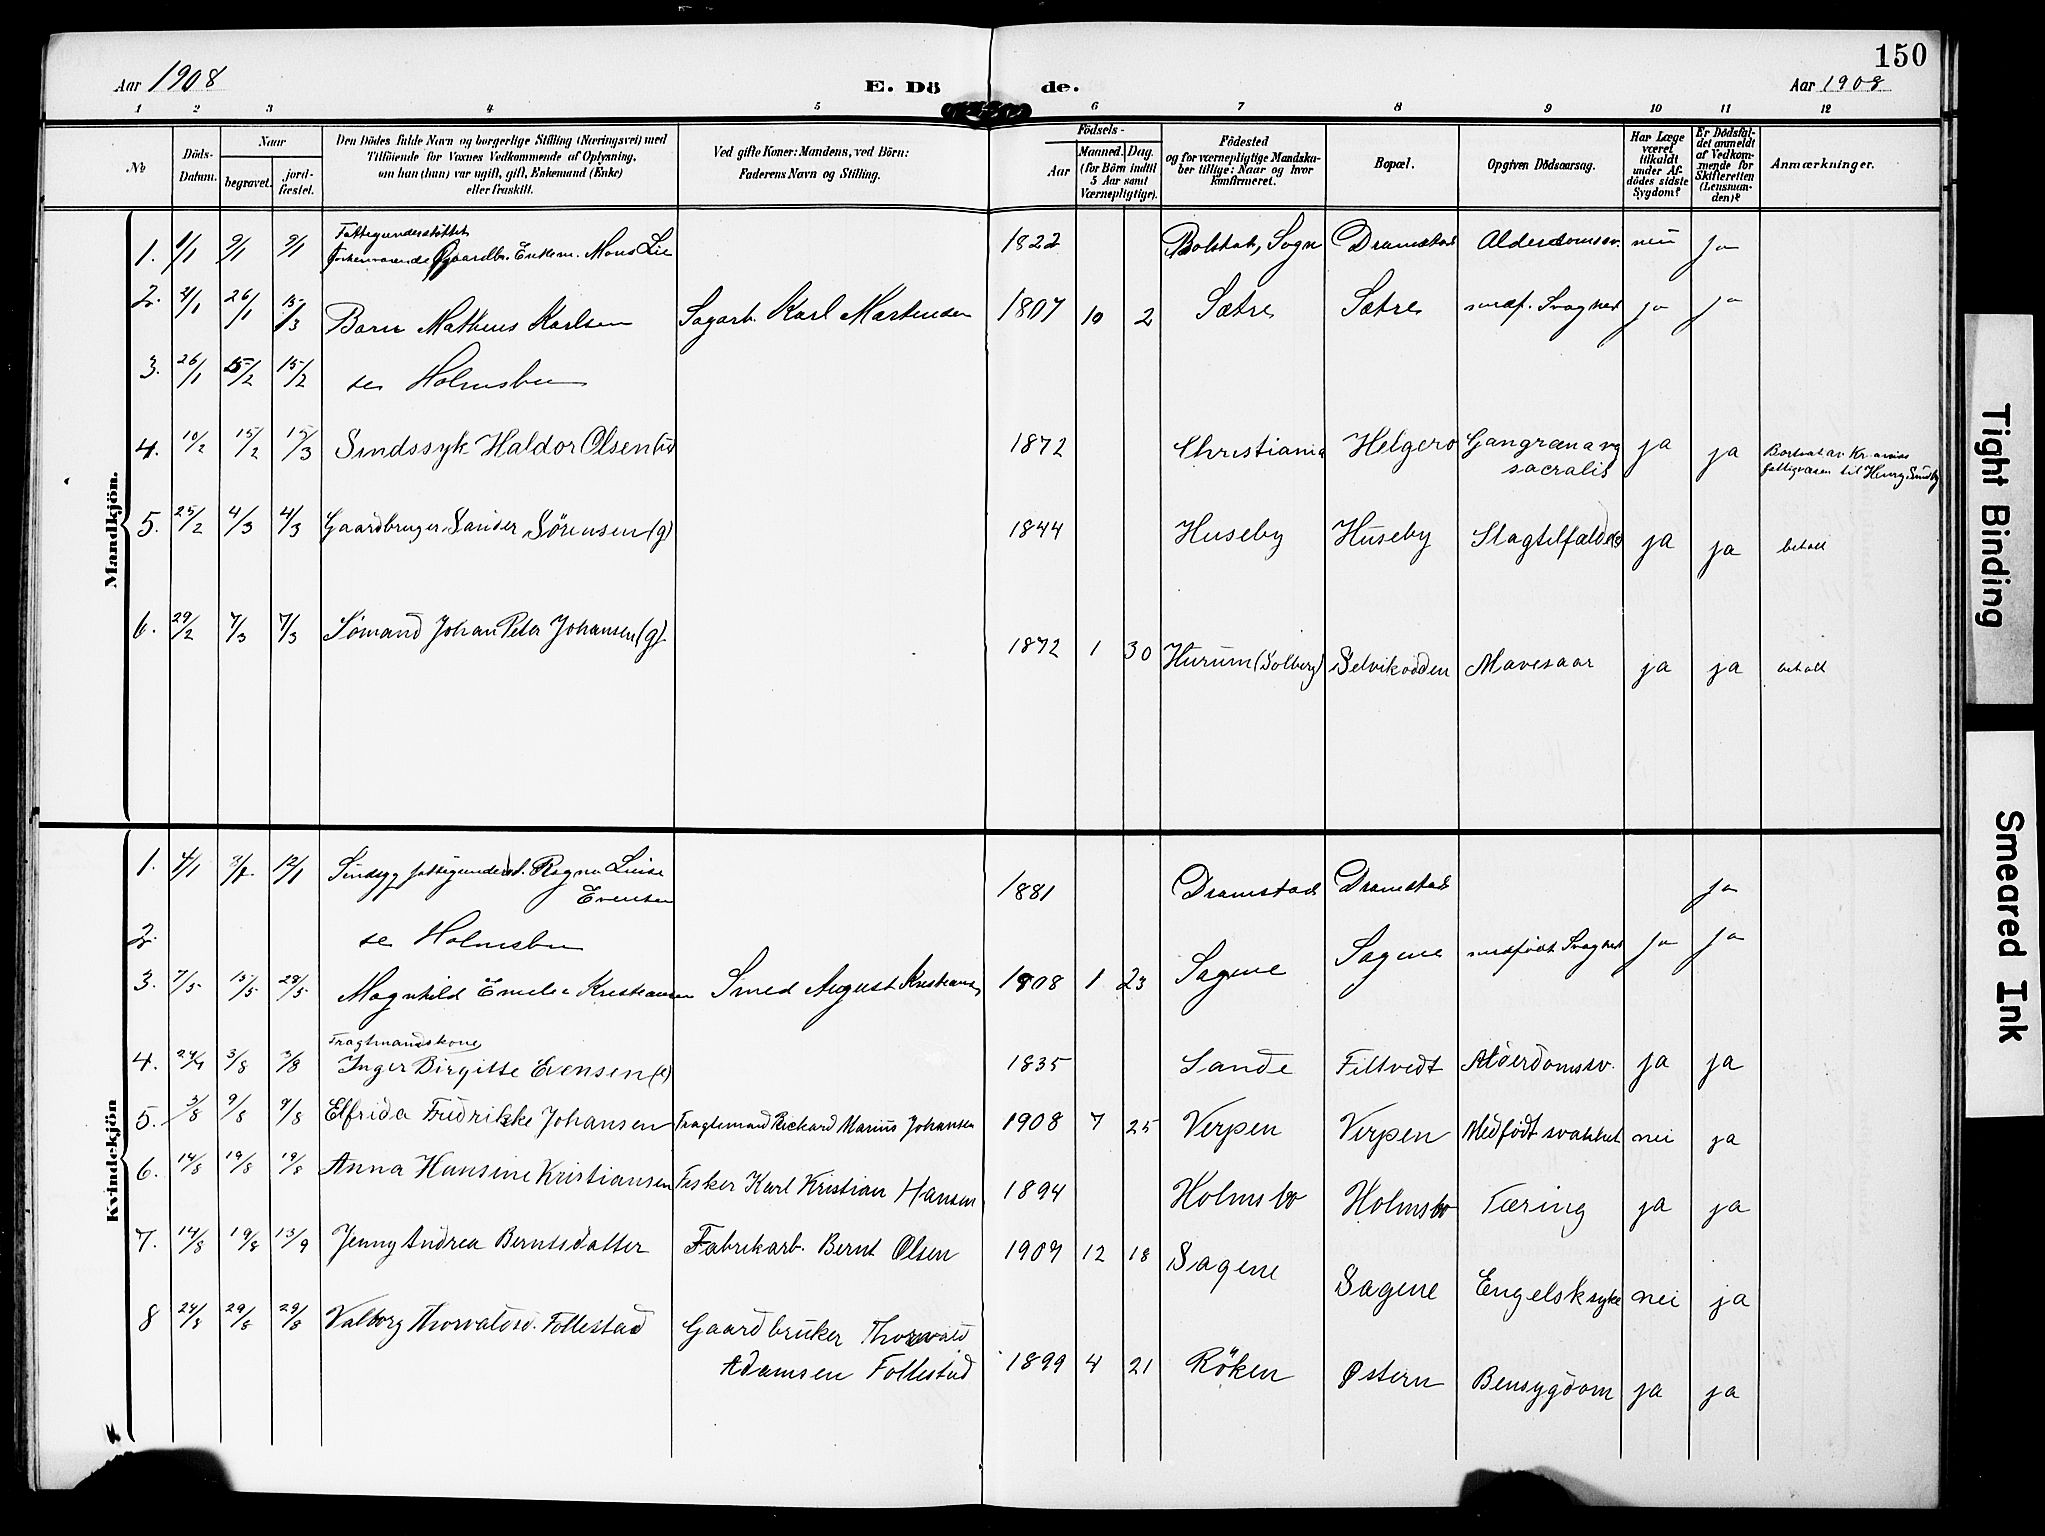 150
Aar 1908 E. Dö de. Aar 1908
1 2 3 4 5 6 7 8 9 10 11 12
No
Döds-Datum.
Naar
begravet.
jord-fæstet.
Den Dödes fulde Navn og borgerlige Stilling (Næringsvei) med
Tilföiende for Voxnes Vedkommende af Oplysning,
om han (hun) var ugift, gift, Enkemand (Enke)
eller fraskilt.
Ved gifte Koner: Mandens, ved Börn:
Faderens Navn og Stilling.
Födsels-
Aar
Maaned. Dag.
(for Börn indtil
5 Aar samt
Værnepligtige).
Födested
og for værnepligtige Mandska-
ber tillige: Naar og hvor
konfirmeret.
Bopæl.
Opgiven Dödsaarsag.
Har Læge
været
tilkaldt
under Af-
dödes sidste
Sygdom?
Er Dödsfal-
det anmeldt
af Vedkom-
mende for
Skifteretten
(Lensman-
den)?
Anmærkninger.
Mandkjön.
Fattigunderstöttet
1. 1/1 9/1 9/1 forhenværende Gaardbr. Enkem. Mons Lie 1822 Bolstat, Sogn Dramstad Alderdomssv. nei ja
2. 4/1 26/1 15/3 Barn Matheus Karlsen Sagarb. Karl Martinsen 1807 10 2 Sætre Sætre medf. Svaghed ja ja
3. 26/1 15/2 15/2 se Holmsbu
4. 10/2 15/2 15/3 Sindssyk Haldor Olsen 1872 Christiania Helgero Gangræna
sacralis ja ja
Bortsat av Kr.anias
fattigvæsen til Henry Sundby
5. 25/2 4/3 4/3 Gaardbruger Sander Sörensen (g) 1844 Huseby Huseby Slagtilfælde ja ja betalt
6. 29/2 7/3 7/3 Sömand Johan Peter Johansen (g) 1872 1 30 Hurum (Solberg) Selvikodden Mavesaar ja ja betalt
Kvindekjön
1. 4/1 12/1 Sindsyg fattigunderst. Ragna Luise
Evensen 1881 Dramstad Dramstad ja
2. se Holmsbu
3. 7/5 15/5 28/5 Magnhild Emelie Kristiansen Smed August Kristiansen 1908 1 23 Sagene Sagene medfödt Svaghed ja ja
Fragtmandskone
4. 3/8 3/8 Inger Birgitte Evensen (e) 1835 Sande Filtvedt Alderdomssv. ja ja
5. 3/8 9/8 9/8 Elfrida Fridrikke Johansen Fragtemand Rickard Marius Johansen 1908 7 25 Verpen Verpen Medfödt svakhet nei ja
6. 14/8 19/8 19/8 Anna Hansine Kristiansen Fisker Karl Kristian Hansen 1894 Holmsbo Holmsbo Tæring ja ja
7. 14/8 19/8 13/9 Jenny Andrea Berntsdatter Fabrikarb. Bernt Olsen 1907 12 18 Sagene Sagene Engelsk syke nei ja
8 24/8 29/8 29/8 Valborg Thorvaldsd. Follestad Gaardbruker Thorvald
Adamsen Follestad 1899 4 21 Röken Östern Bensygdom ja ja
Tight Binding
Smeared Ink